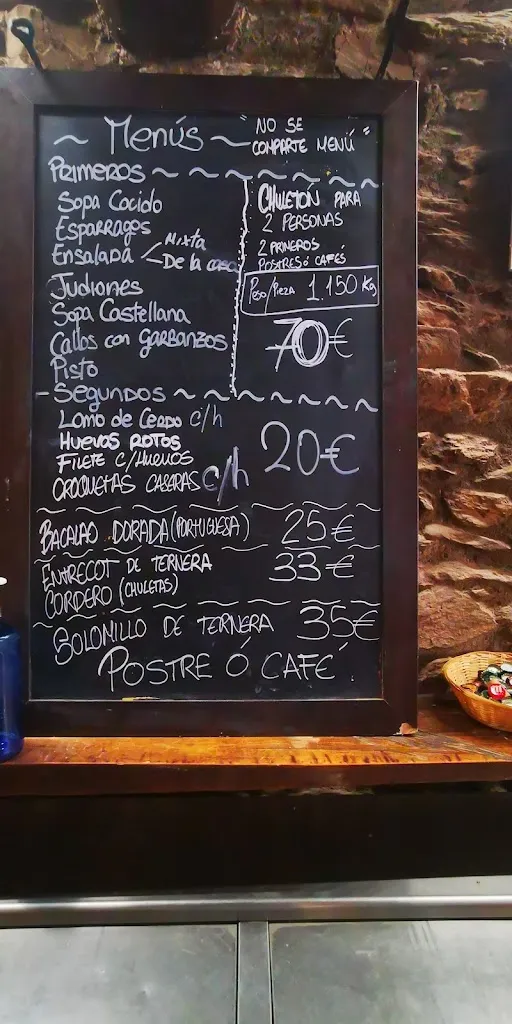 Menús
"NO SE
COMPARTE MENÚ"
PRIMEROS
Sopa Cocido
Esparragos
Ensalada < Mixta
De la casa
Judiones
Sopa Castellana
Callos con GARBANZOS
Pisto
CHULETÓN PARA
2 PERSONAS
2 PRIMEROS
POSTRES Ó CAFÉS
Peso/Pieza 1.150 Kg
70€
- SEGUNDOS
Lomo de CERDO c/h
HUEVOS ROTOS
FILETE C/HUEVOS
CROQUETAS CASERAS c/h
20€
BACALAO DORADA (PORTUGUESA) 25€
ENTRECOT DE TERNERA 33€
CORDERO (CHULETAS)
SOLOMILLO DE TERNERA 35€
POSTRE Ó CAFÉ